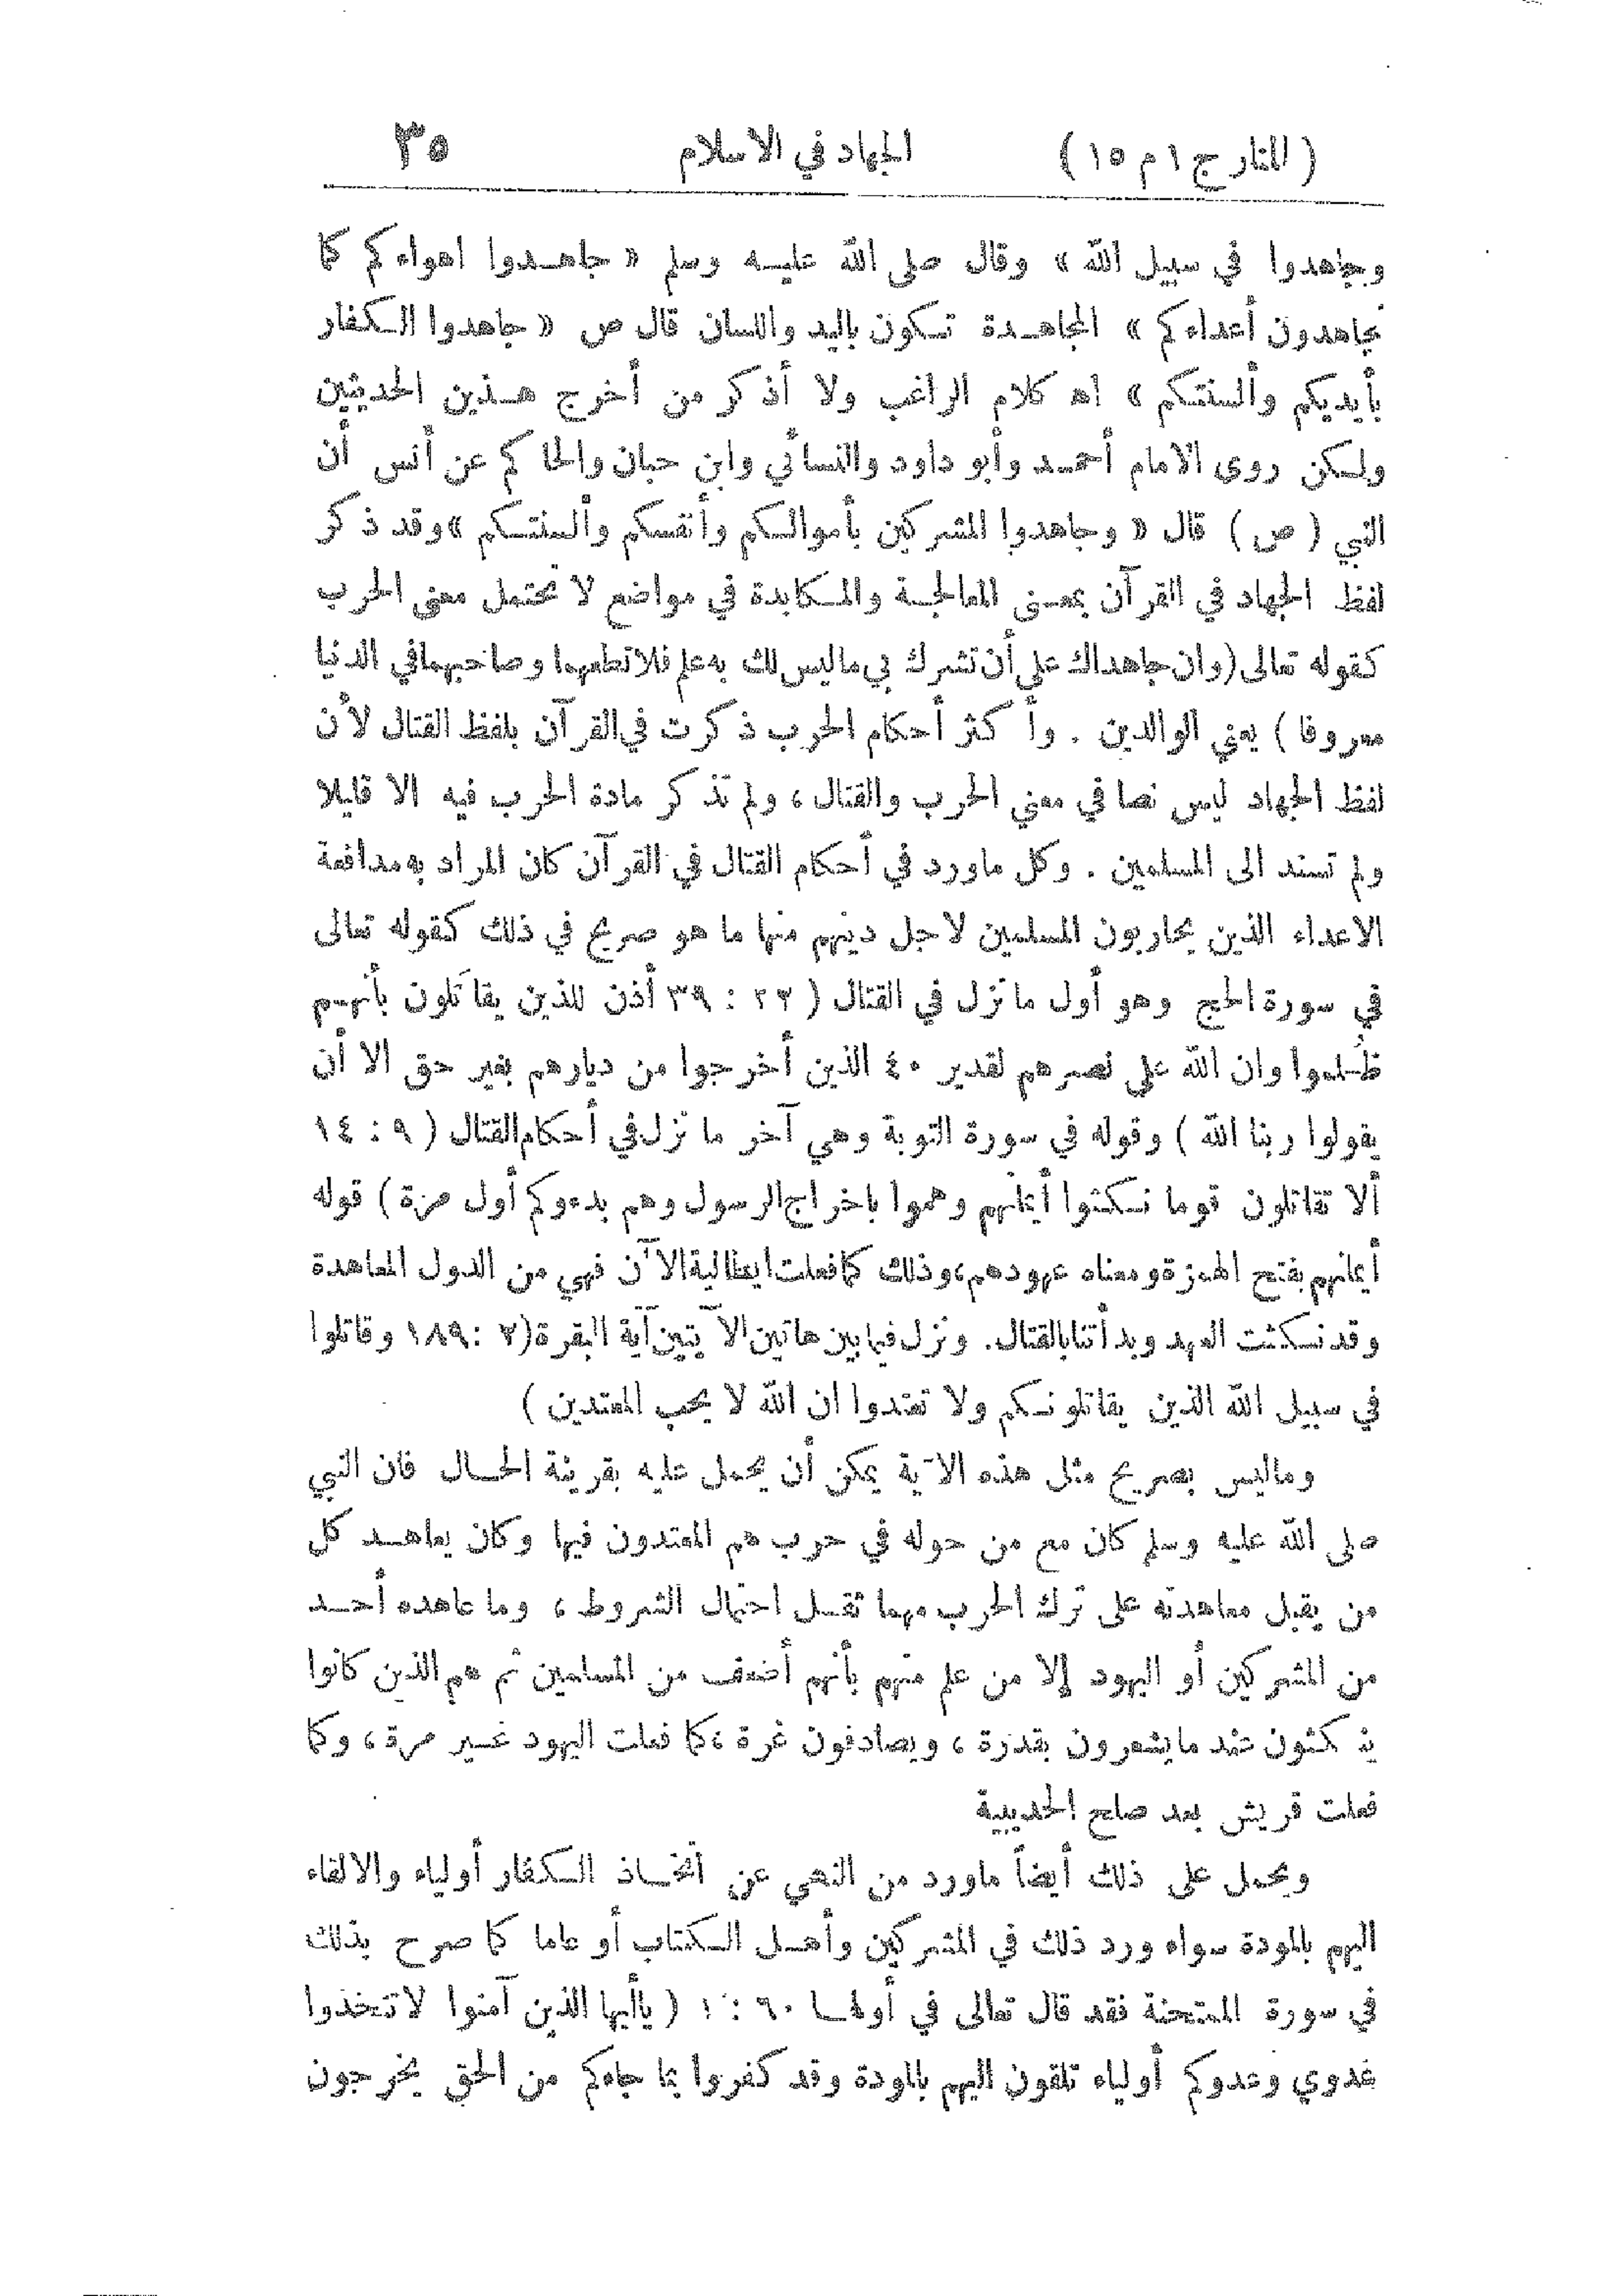 (المنار ج ١ م ١٥) الجهاد في الاسلام ٣٥
وجاهدوا في سبيل الله » وقال صلى الله عليه وسلم « جاهدوا اهواءكم كما
تجاهدون أعداءكم » المجاهدة تكون باليد واللسان قال ص « جاهدوا الكفار
بأيديكم وألسنتكم » اه كلام الراغب ولا أذكر من أخرج هذين الحديثين
ولكن روى الامام أحمد وأبو داود والنسائي وابن حبان والحاكم عن أنس أن
النبي ( ص ) قال « وجاهدوا المشركين بأموالكم وأنفسكم وألسنتكم » وقد ذكر
لفظ الجهاد في القرآن بمعنى المعالجة والمكابدة في مواضع لا تحتمل معنى الحرب
كقوله تعالى (وان جاهداك على أن تشرك بي ما ليس لك به علم فلا تطعهما وصاحبهما في الدنيا
معروفا ) يعني الوالدين . وأكثر أحكام الحرب ذكرت في القرآن بلفظ القتال لأن
لفظ الجهاد ليس نصا في معنى الحرب والقتال ، ولم تذكر مادة الحرب فيه الا قليلا
ولم تسند الى المسلمين . وكل ماورد في أحكام القتال في القرآن كان المراد به مدافعة
الاعداء الذين يحاربون المسلمين لاجل دينهم منها ما هو صريح في ذلك كقوله تعالى
في سورة الحج وهو أول ما نزل في القتال ( ٢٢ : ٣٩ أذن للذين يقاتَلون بأنهم
ظُلموا وان الله على نصرهم لقدير ٤٠ الذين أخرجوا من ديارهم بغير حق الا أن
يقولوا ربنا الله ) وقوله في سورة التوبة وهي آخر ما نزل في أحكام القتال ( ٩ : ١٤
ألا تقاتلون قوما نكثوا أيمانهم وهموا باخراج الرسول وهم بدءوكم أول مرة ) قوله
أيمانهم بفتح الهمزة ومعناه عهودهم، وذلك كما فعلت ايطالية الآن فهي من الدول المعاهدة
وقد نكثت العهد وبدأتنا بالقتال. ونزل فيما بين هاتين الآيتين آية البقرة (٢ : ١٨٩ وقاتلوا
في سبيل الله الذين يقاتلونكم ولا تعتدوا ان الله لا يحب المعتدين )
وماليس بصريح مثل هذه الآية يمكن أن يحمل عليه بقرينة الحال فان النبي
صلى الله عليه وسلم كان مع من حوله في حرب هم المعتدون فيها وكان يعاهد كل
من يقبل معاهدته على ترك الحرب مهما ثقل احتمال الشروط ، وما عاهده أحد
من المشركين أو اليهود إلا من علم منهم بأنهم أضعف من المسلمين ثم هم الذين كانوا
ينكثون عند ما يشعرون بقدرة ، ويصادفون غرة ، كما فعلت اليهود غير مرة ، وكما
فعلت قريش بعد صلح الحديبية
ويحمل على ذلك أيضاً ماورد من النهي عن اتخاذ الكفار أولياء والالقاء
اليهم بالمودة سواء ورد ذلك في المشركين وأهل الكتاب أو عاما كما صرح بذلك
في سورة الممتحنة فقد قال تعالى في أولها ٦٠ : ١ ( ياأيها الذين آمنوا لا تتخذوا
عدوي وعدوكم أولياء تلقون اليهم بالمودة وقد كفروا بما جاءكم من الحق يخرجون